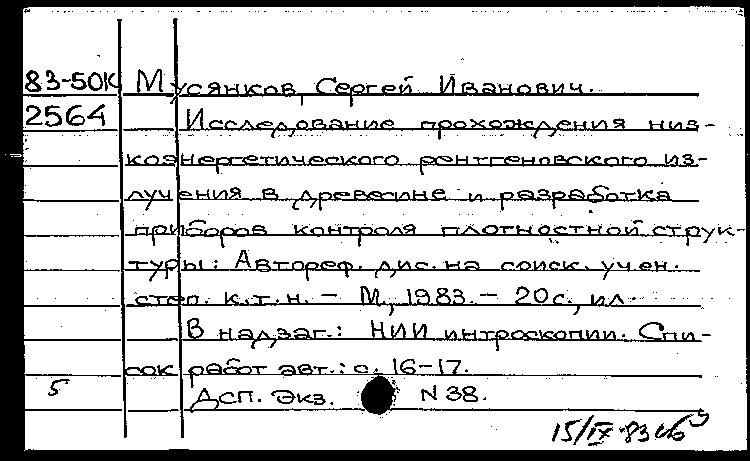 83-50К Мусянков, Сергей Иванович.
2564 Исследование прохождения низ-
коэнергетического рентгеновского из-
лучения в древесине и разработка
приборов контроля плотностной струк-
туры: Автореф. дис. на соиск. учен.
степ. к.т.н. - М., 1983. - 20с., ил.
В надзаг.: НИИ интроскопии. Спи-
сок работ авт.: с. 16-17.
5 Дсп. Экз. N 38.
15/IX-83